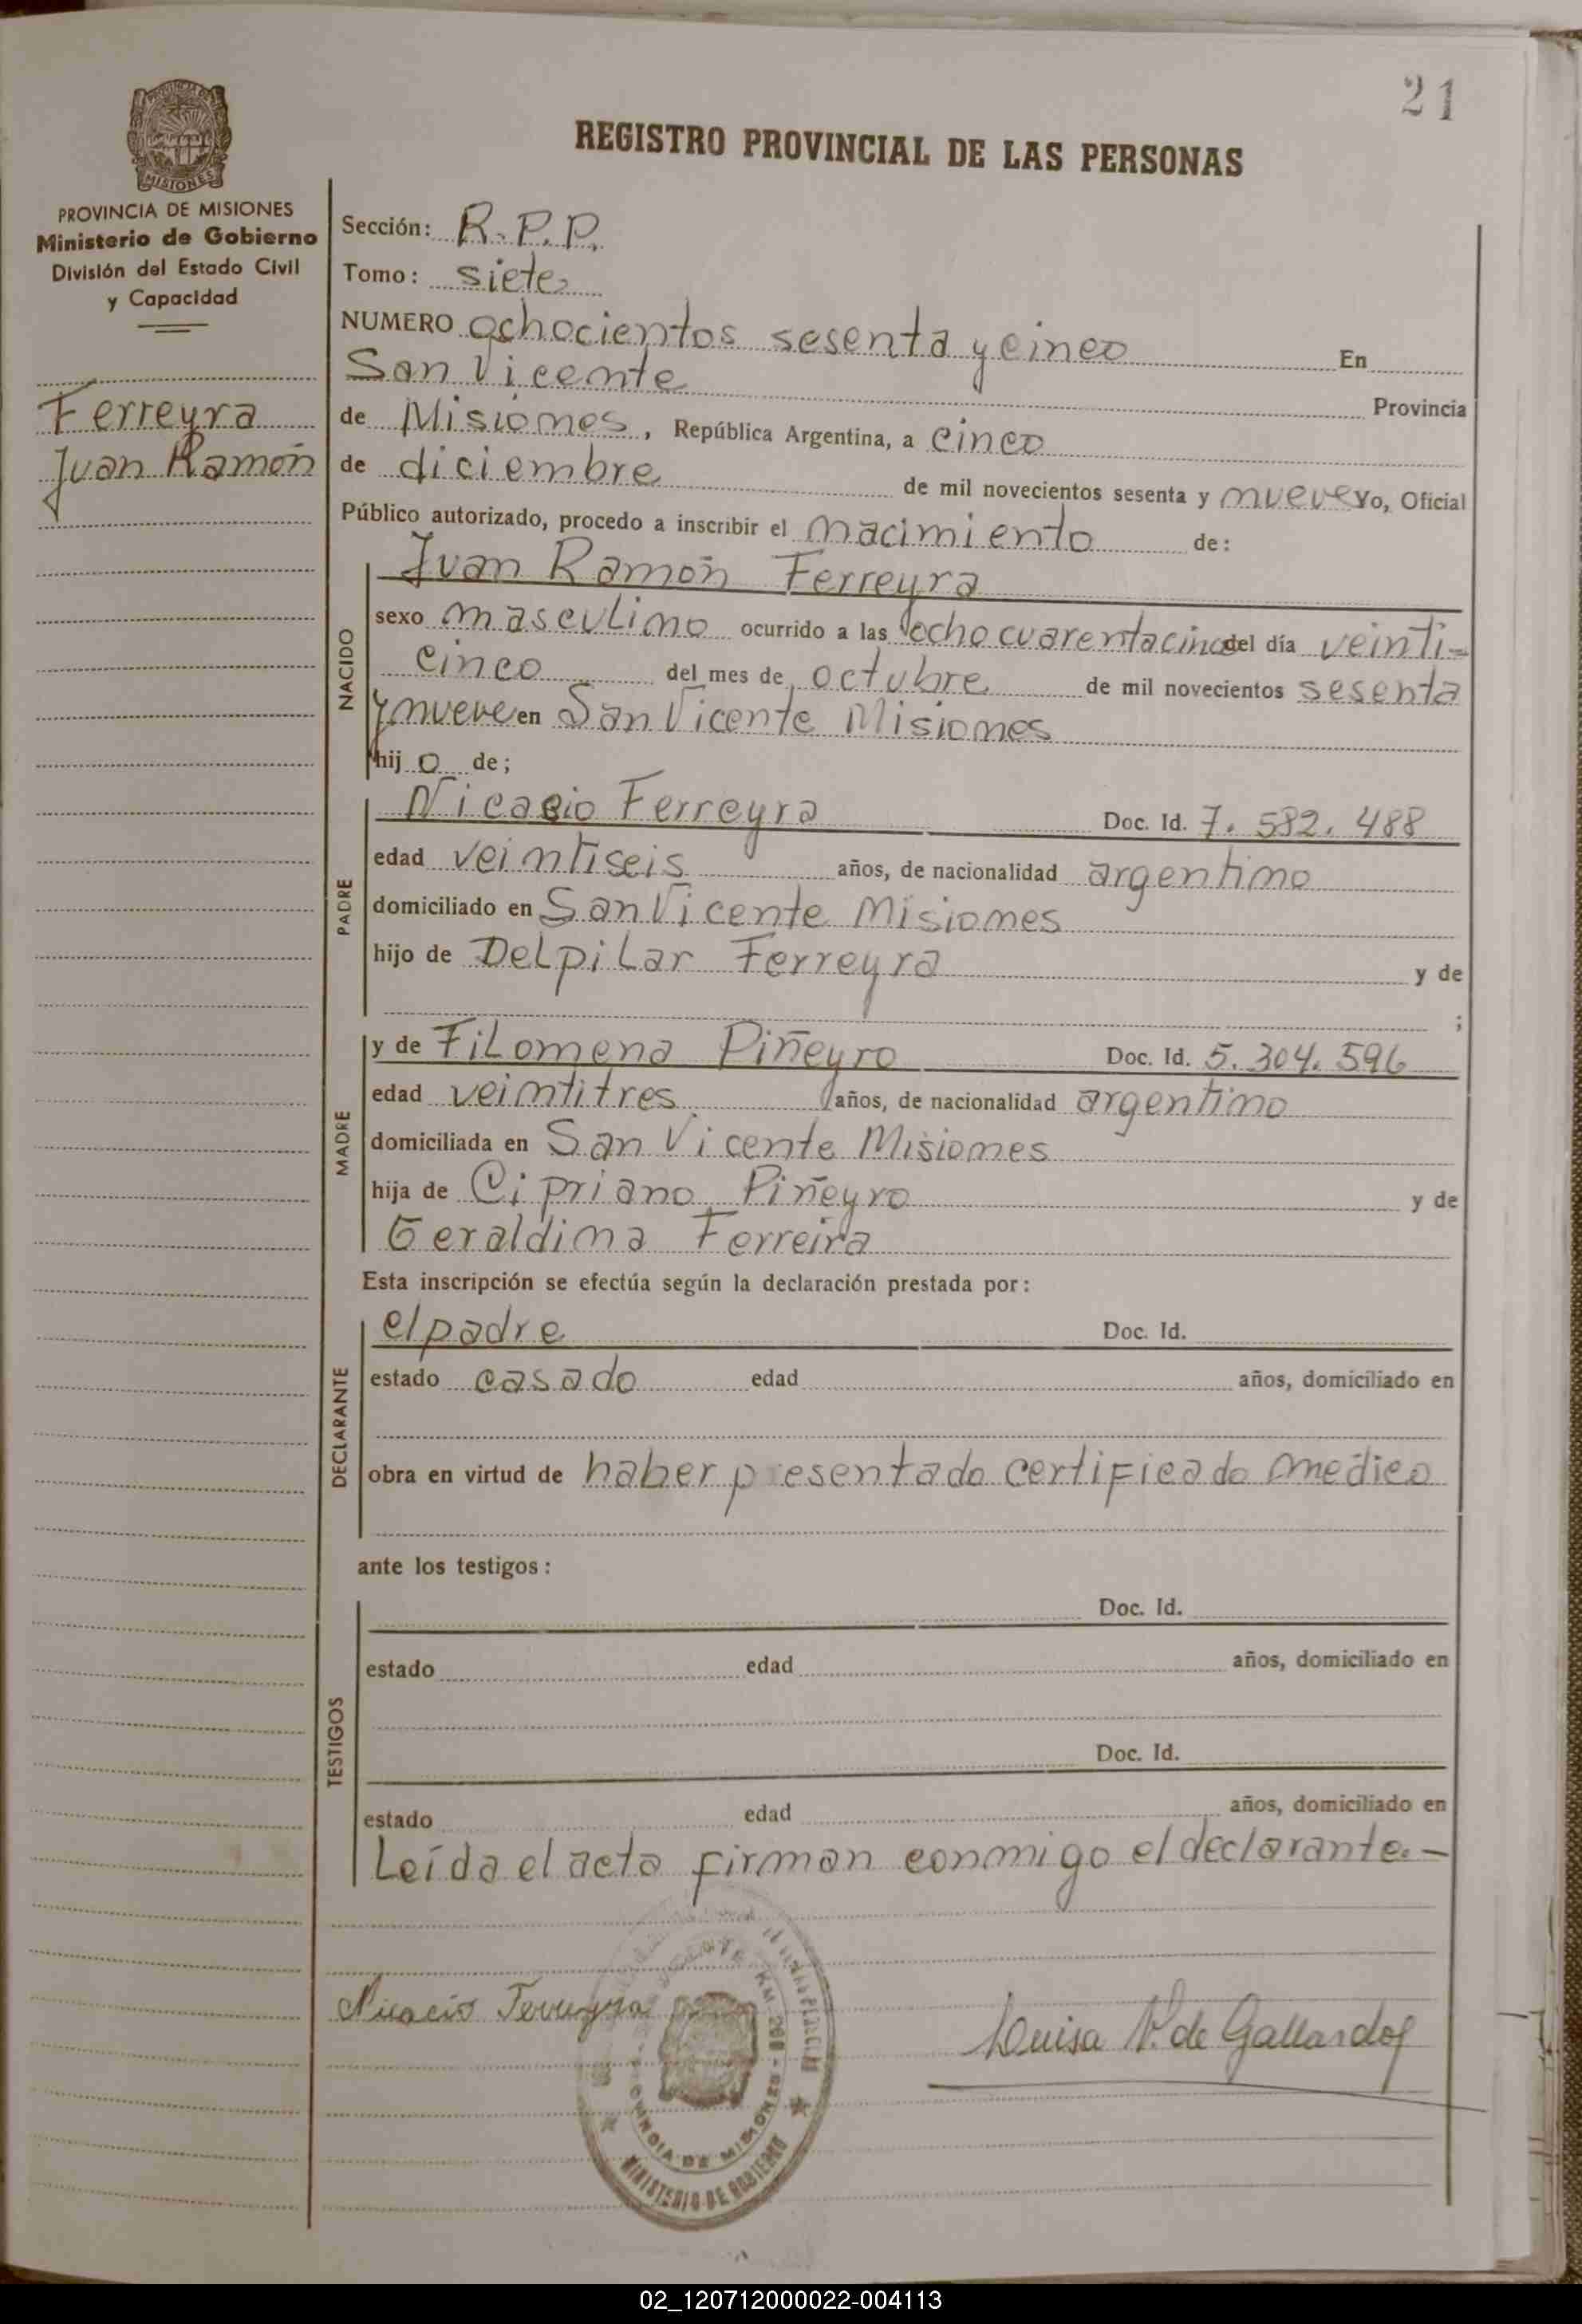 21
REGISTRO PROVINCIAL DE LAS PERSONAS
MISIONES
PROVINCIA DE MISIONES
Ministerio de Gobierno
División del Estado Civil
y Capacidad
Ferreyra
Juan Ramón
Sección: R.P.P.
Tomo: siete
NUMERO ochocientos sesenta y cinco En
San Vicente Provincia
de Misiones, República Argentina, a cinco
de diciembre de mil novecientos sesenta y nueve Yo, Oficial
Público autorizado, procedo a inscribir el nacimiento de:
NACIDO
Juan Ramón Ferreyra
sexo masculino ocurrido a las ocho cuarentacinco del día veinti-
cinco del mes de octubre de mil novecientos sesenta
y nueve en San Vicente Misiones
hij o de;
PADRE
Nicasio Ferreyra Doc. Id. 7. 582. 488
edad veintiseis años, de nacionalidad argentino
domiciliado en San Vicente Misiones
hijo de Delpilar Ferreyra y de
;
MADRE
y de Filomena Piñeyro Doc. Id. 5. 304. 596
edad veintitres años, de nacionalidad argentino
domiciliada en San Vicente Misiones
hija de Cipriano Piñeyro y de
Geraldina Ferreira
Esta inscripción se efectúa según la declaración prestada por:
DECLARANTE
el padre Doc. Id.
estado casado edad años, domiciliado en
obra en virtud de haber presentado certificado medico
ante los testigos:
TESTIGOS
Doc. Id.
estado edad años, domiciliado en
Doc. Id.
estado edad años, domiciliado en
Leída el acta firman conmigo el declarante.-
Nicacio Ferreyra
Luisa V. de Gallardo
VICENTE KM. 268 - PROVINCIA DE MISIONES
MINISTERIO DE GOBIERNO
02_120712000022-004113